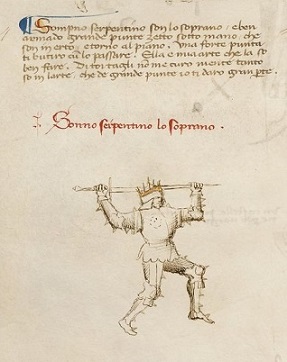 Sompno serpentino son lo soprano e ben
armado grande punte zetto sotto mano che
son in erto e torno al piano. Una forte punta
ti butirò cum lo passare. Ella e mia arte che la so
ben fare. Di toi tagli no me curo niente tanto
so in larte, che de grande punte io ti daro gran pte.
Sonno serpentino lo soprano.